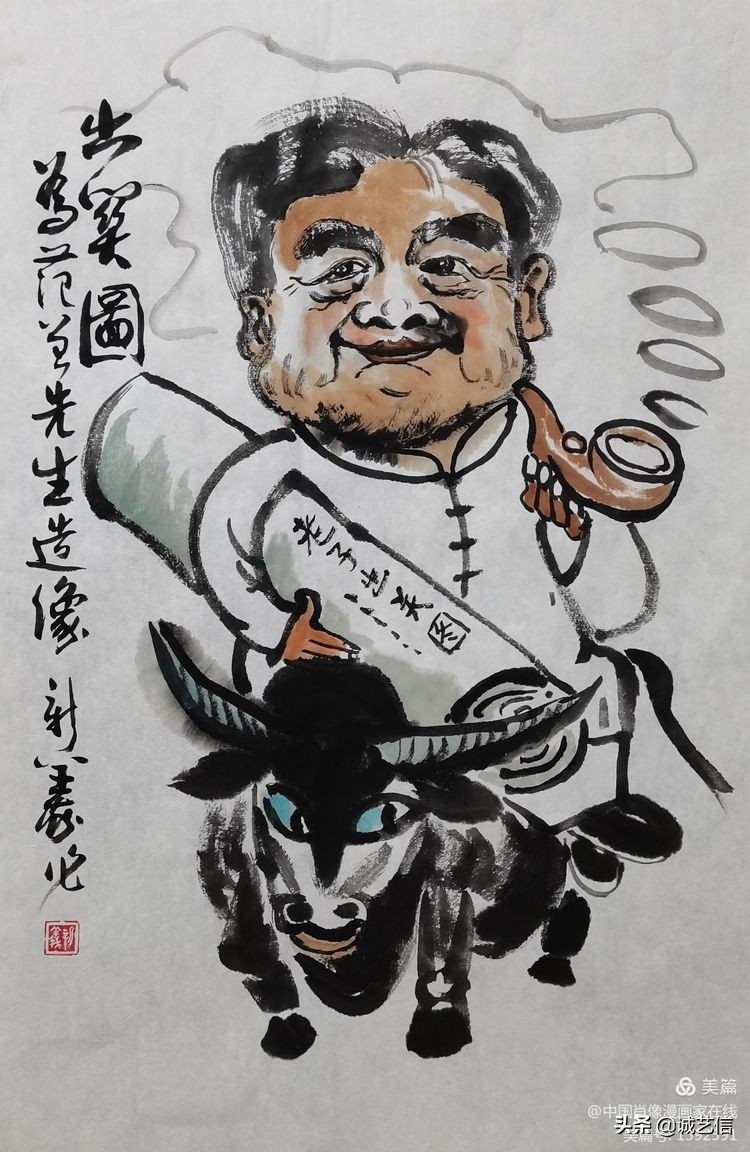 出關圖
為范曾先生造像 新義作
老子出关图
美篇
@中国肖像漫画家在线
头条 @诚艺信
美篇号